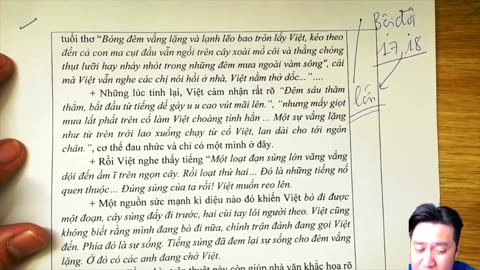 tuổi thơ "Bóng đêm vắng lặng và lạnh lẽo bao tròn lấy Việt, kéo theo
đến cả con ma cụt đầu vẫn ngồi trên cây xoài mồ côi và thằng chỏng
thụt lưỡi hay nhảy nhót trong những đêm mưa ngoài vàm sông", cái
mà Việt vẫn nghe các chị nói hồi ở nhà, Việt nằm thở dốc..."....
+ Những lúc tỉnh lại, Việt cảm nhận rất rõ "Đêm sâu thăm
thẳm, bắt đầu từ tiếng dế gáy u u cao vút mãi lên.", "nhưng mấy giọt
mưa lất phất trên cổ làm Việt choàng tỉnh hẳn... Một sự vắng lặng
như từ trên trời lao xuống chạy từ cổ Việt, lan dài cho tới ngón
chân.", cơ thể đau nhức và chỉ có một mình ở đây.
+ Rồi Việt nghe thấy tiếng "Một loạt đạn súng lớn văng vẳng
dội đến ầm ĩ trên ngọn cây. Rồi loạt thứ hai... Đó là những tiếng nổ
quen thuộc... Đúng súng của ta rồi! Việt muốn reo lên.
+ Một nguồn sức mạnh kì diệu nào đó khiến Việt bò đi được
một đoạn, cây súng đẩy đi trước, hai cùi tay lôi người theo. Việt cũng
không biết rằng mình đang bò đi nữa, chính trận đánh đang gọi Việt
đến. Phía đó là sự sống. Tiếng súng đã đem lại sự sống cho đêm vắng
lặng. Ở đó có các anh đang chờ Việt.
thuật này còn giúp nhà văn khắc họa rõ
17, 18
lần